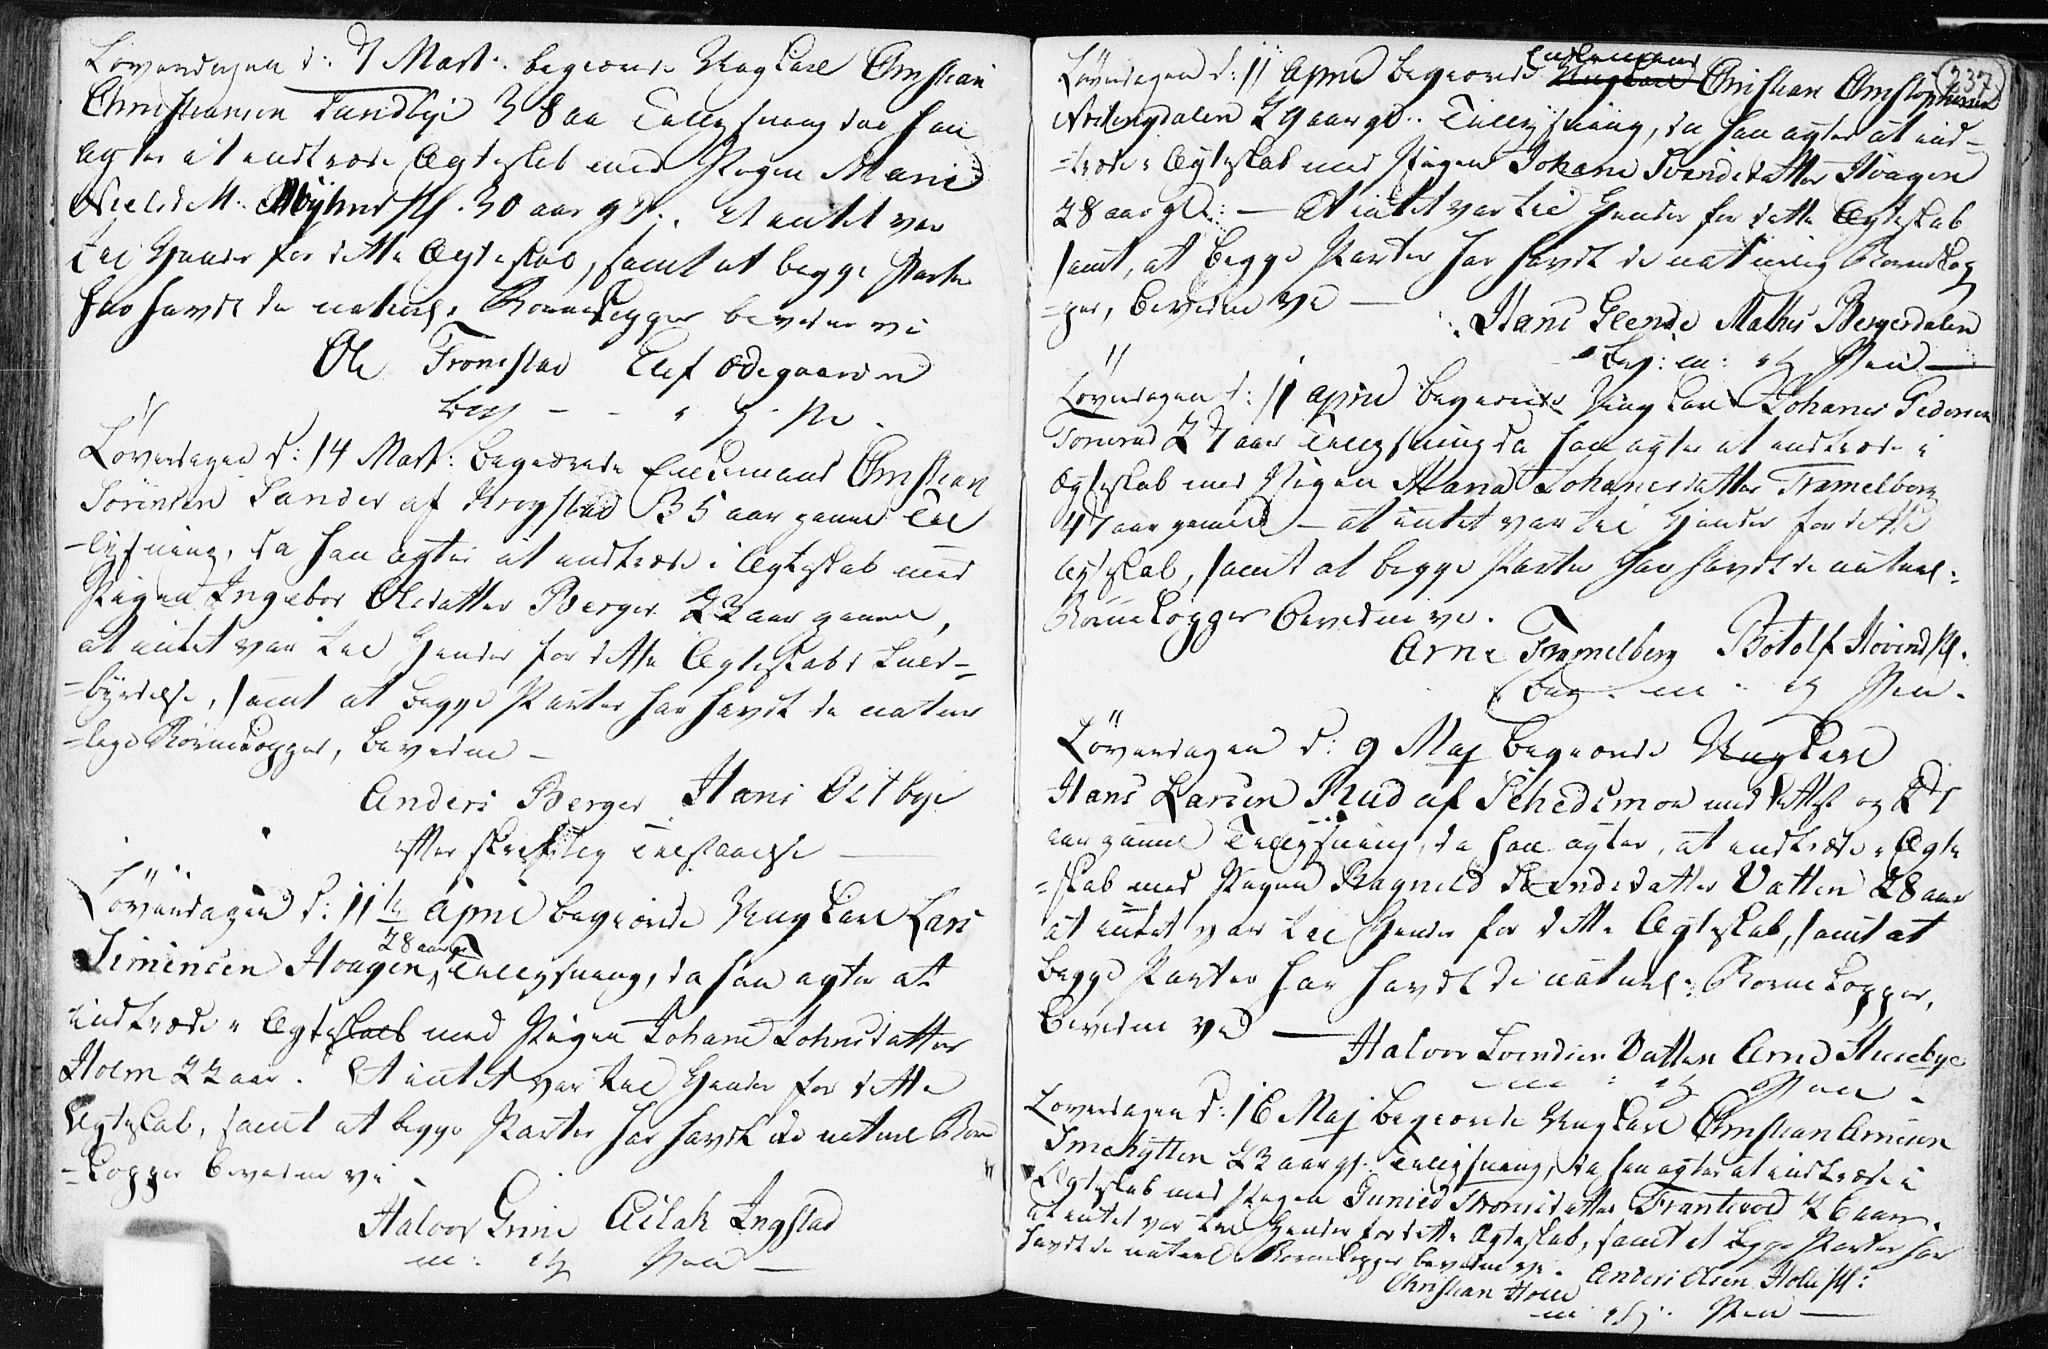 Løverdagen d: 7 Mart: begærede Ungkarl Christian
Christiansen Sandbye 38 aa Tillysning da han
agter at indtræde i Ægteskab med Pigen Marie
Nielsdatt: Myhrer 30 aar gl: At intet var
til Hinder for dette Ægteskab, samt at begge Parter
har havdt de naturl: Børnekopper bevidner vi
Ole Tronstad Elef Ødegaarden
Løverdagen d: 14 Mart: begærede Enkemand Christian
Sørensen Sander af Krogstad 35 aar gammel Til
-lysning, da han agter at indtræde i Ægteskab med
Pigen Ingebor Olsdatter Berger 22 aar gammel,
at intet var til Hinder for dette Ægteskabs Fuld-
-byrdelse, samt at begge Parter har havdt de natur
-lige Børnekopper, bevidne –
Anders Berger Hans Østbye
efter skriftlig Tilstaaelse
Løverdagen d: 11 April begærede Ungkarl Lars
28 aar
Simensen Haagen, Tillysning, da han agter at
indtræde i Ægteskab med Pigen Johane Johnsdatter
Holm 22 aar. At intet var til Hinder for dette
Ægteskab, samt at begge Parter har havdt de naturl Børne
-kopper bevidner vi
Halvor Grini Aslak Ingstad
m: P: Pen
237
Løverdagen d: 11 April begærede Enkemand Ungkarl Christian Christophersen
28 aar gl: Tillysning, da han agter at ind-
-træde i Ægteskab med Pigen Johane Svendsdatter Haagen
28 aar gl: – At intet var til Hinder for dette Ægteskab
samt, at begge Parter har havdt de naturlig Børnekop
-per, bevidne vi –
Hans Mathis Bergerdalen
m: P: Pen
Løverdagen d: 11 April begærede Ungkarl Johanes Pedersen
27 aar Tillysning da han agter at indtræde i
Ægteskab med Pigen Maria Johanesdatter Tramelborg
47 aar gammel – at intet var til Hinder for dette
Ægteskab, samt at begge Parter har havdt de naturl:
Børnekopper bevidne vi.
Arne Tramelberg Botolf Hovind
m: P: Pen.
Løverdagen d: 9 Maj begærede Ungkarl
Hans Larsen Rud af Schedsmoe med Attest og 27
aar gammel Tillysning, da han agter, at indtræde i Ægte
-skab med Pigen Ragnild Svendsdatter Vatten 28 aar
at intet var til Hinder for dette Ægteskab, samt at
begge Parter har havdt de naturl: Børnekopper,
bevidne vi –
Halvor Svendsen Vatten Arne Huusebye
m: P: Pen
Løverdagen d: 16 Maj begærede Ungkarl Christian Arnesen
Smehytten 22 aar gl. Tillysning, da han agter at indtræde i
Ægteskab med Pigen Gunild 26 aar.
at intet var til Hinder for dette Ægteskab, samt at begge Parter har
havdt de naturl Børnekopper bevidne vi. Anders Olsen Holm
Christian Holm
m: P: Pen